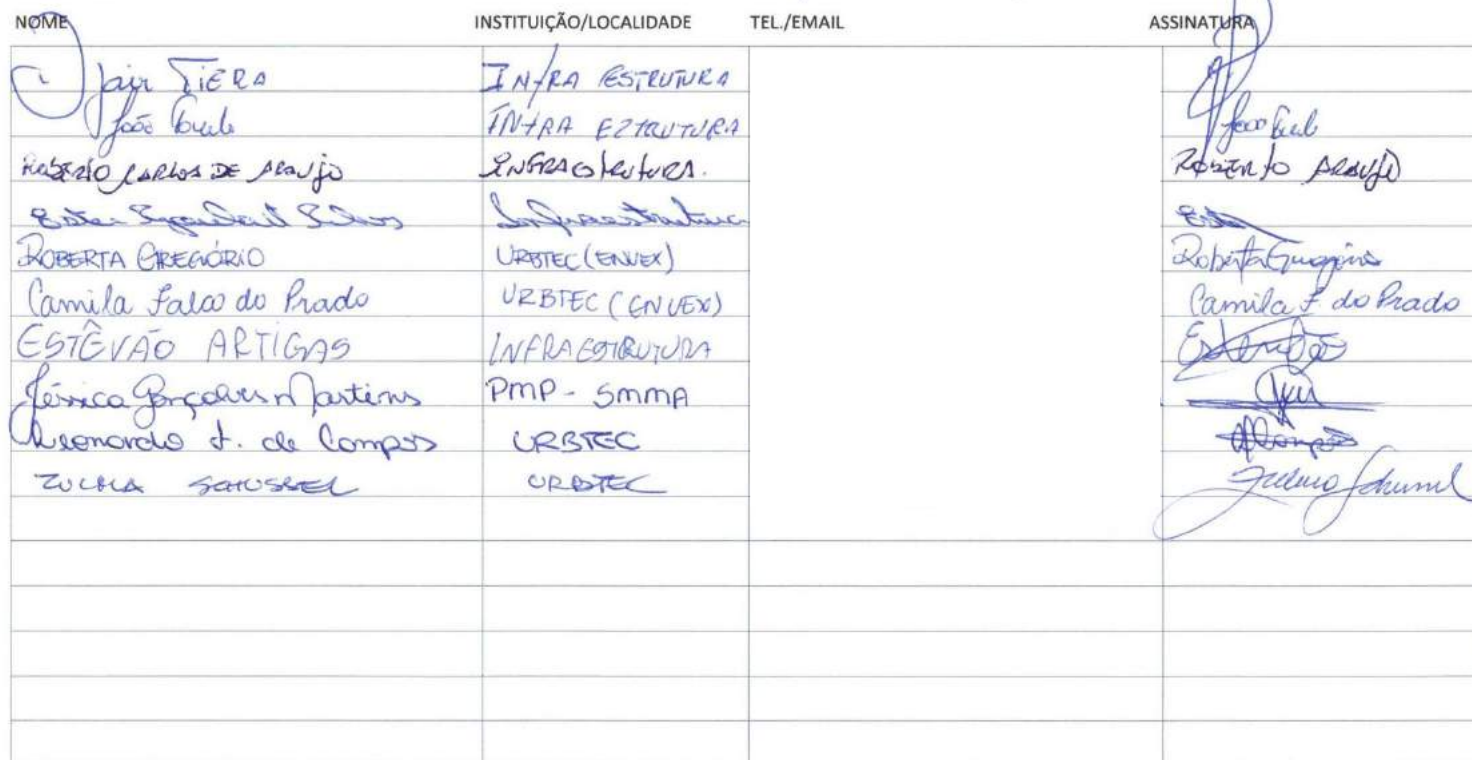 NOME INSTITUIÇÃO/LOCALIDADE TEL./EMAIL ASSINATURA
Jair TIERA INFRA ESTRUTURA
João INFRA EZTRUTURA João
ROBERTO CARLOS DE ARAUJO INFRAESTRUTURA. ROBERTO ARAUJO
Ester Infraestrutura Ester
ROBERTA GREGÓRIO URBTEC (ENVEX) Roberta Gregório
Camila Falco do Prado URBTEC (ENVEX) Camila F. do Prado
ESTÊVÃO ARTIGAS INFRAESTRUTURA Estevão
Jéssica Gonçalves Martins PMP - SMMA
Leonardo F. de Campos URBTEC
ZULMA SCHUSSEL URBTEC Zulma Schussel